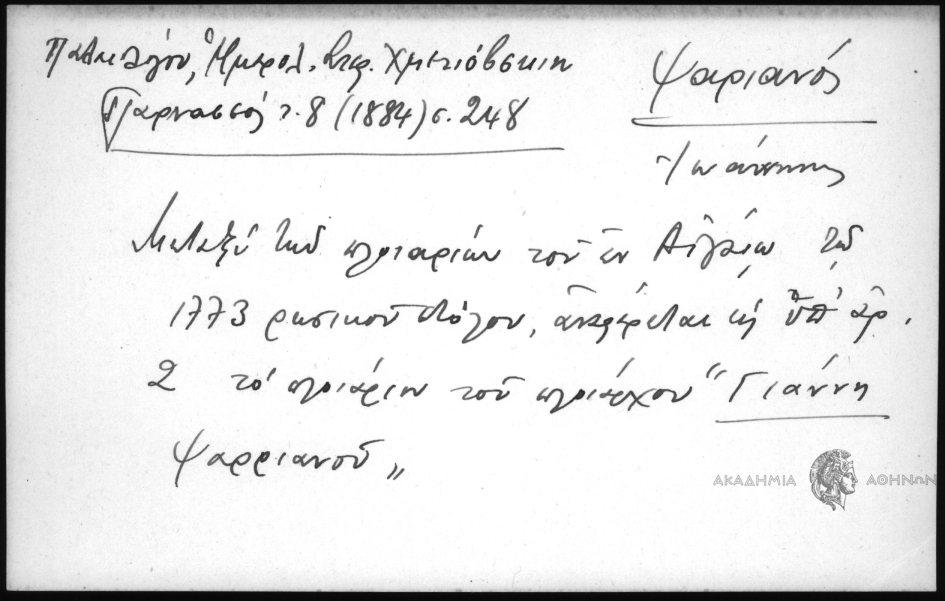 Παλαιολόγου, Ἡμερολ. Στεφ. Χμετιόβσκιη
Παρνασσός τ. 8 (1884) σ. 248
Ψαριανός
Ἰωάννης
Μεταξύ τῶν πλοιαρίων τοῦ ἐν Αἰγαίῳ τῷ
1773 ρωσικοῦ στόλου, ἀναφέρεται ὡς ὑπ' ἀρ.
2 τὸ πλοιάριον τοῦ πλοιάρχου "Γιάννη
Ψαρριανοῦ„
ΑΚΑΔΗΜΙΑ ΑΘΗΝΩΝ